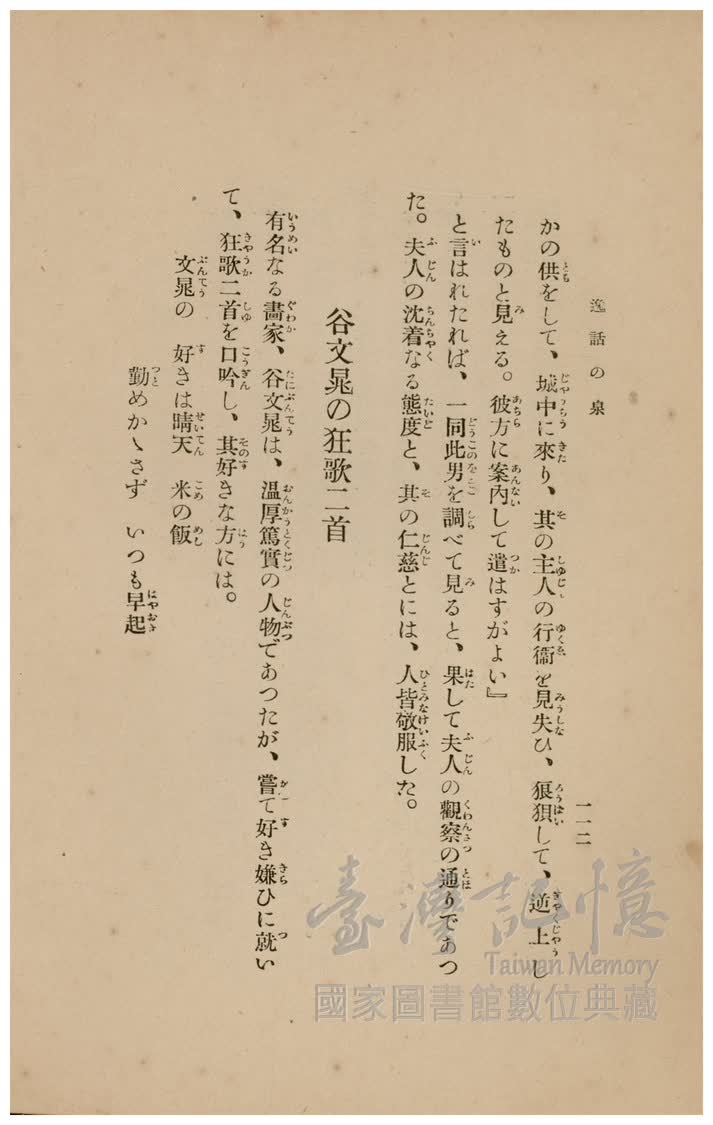 逸話の泉
一一二
かの供をして、城中に來り、其の主人の行衞を見失ひ、狼狽して、逆上し
たものと見える。彼方に案內して遣はすがよい』
と言はれたれば、一同此男を調べて見ると、果して夫人の觀察の通りであつ
た。夫人の沈着なる態度と、其の仁慈とには、人皆敬服した。
谷文晁の狂歌二首
有名なる畫家、谷文晁は、溫厚篤實の人物であつたが、嘗て好き嫌ひに就い
て、狂歌二首を口吟し、其好きな方には。
文晁の　好きは晴天　米の飯
勤めかゝさず　いつも早起
臺灣記憶
Taiwan Memory
國家圖書館數位典藏